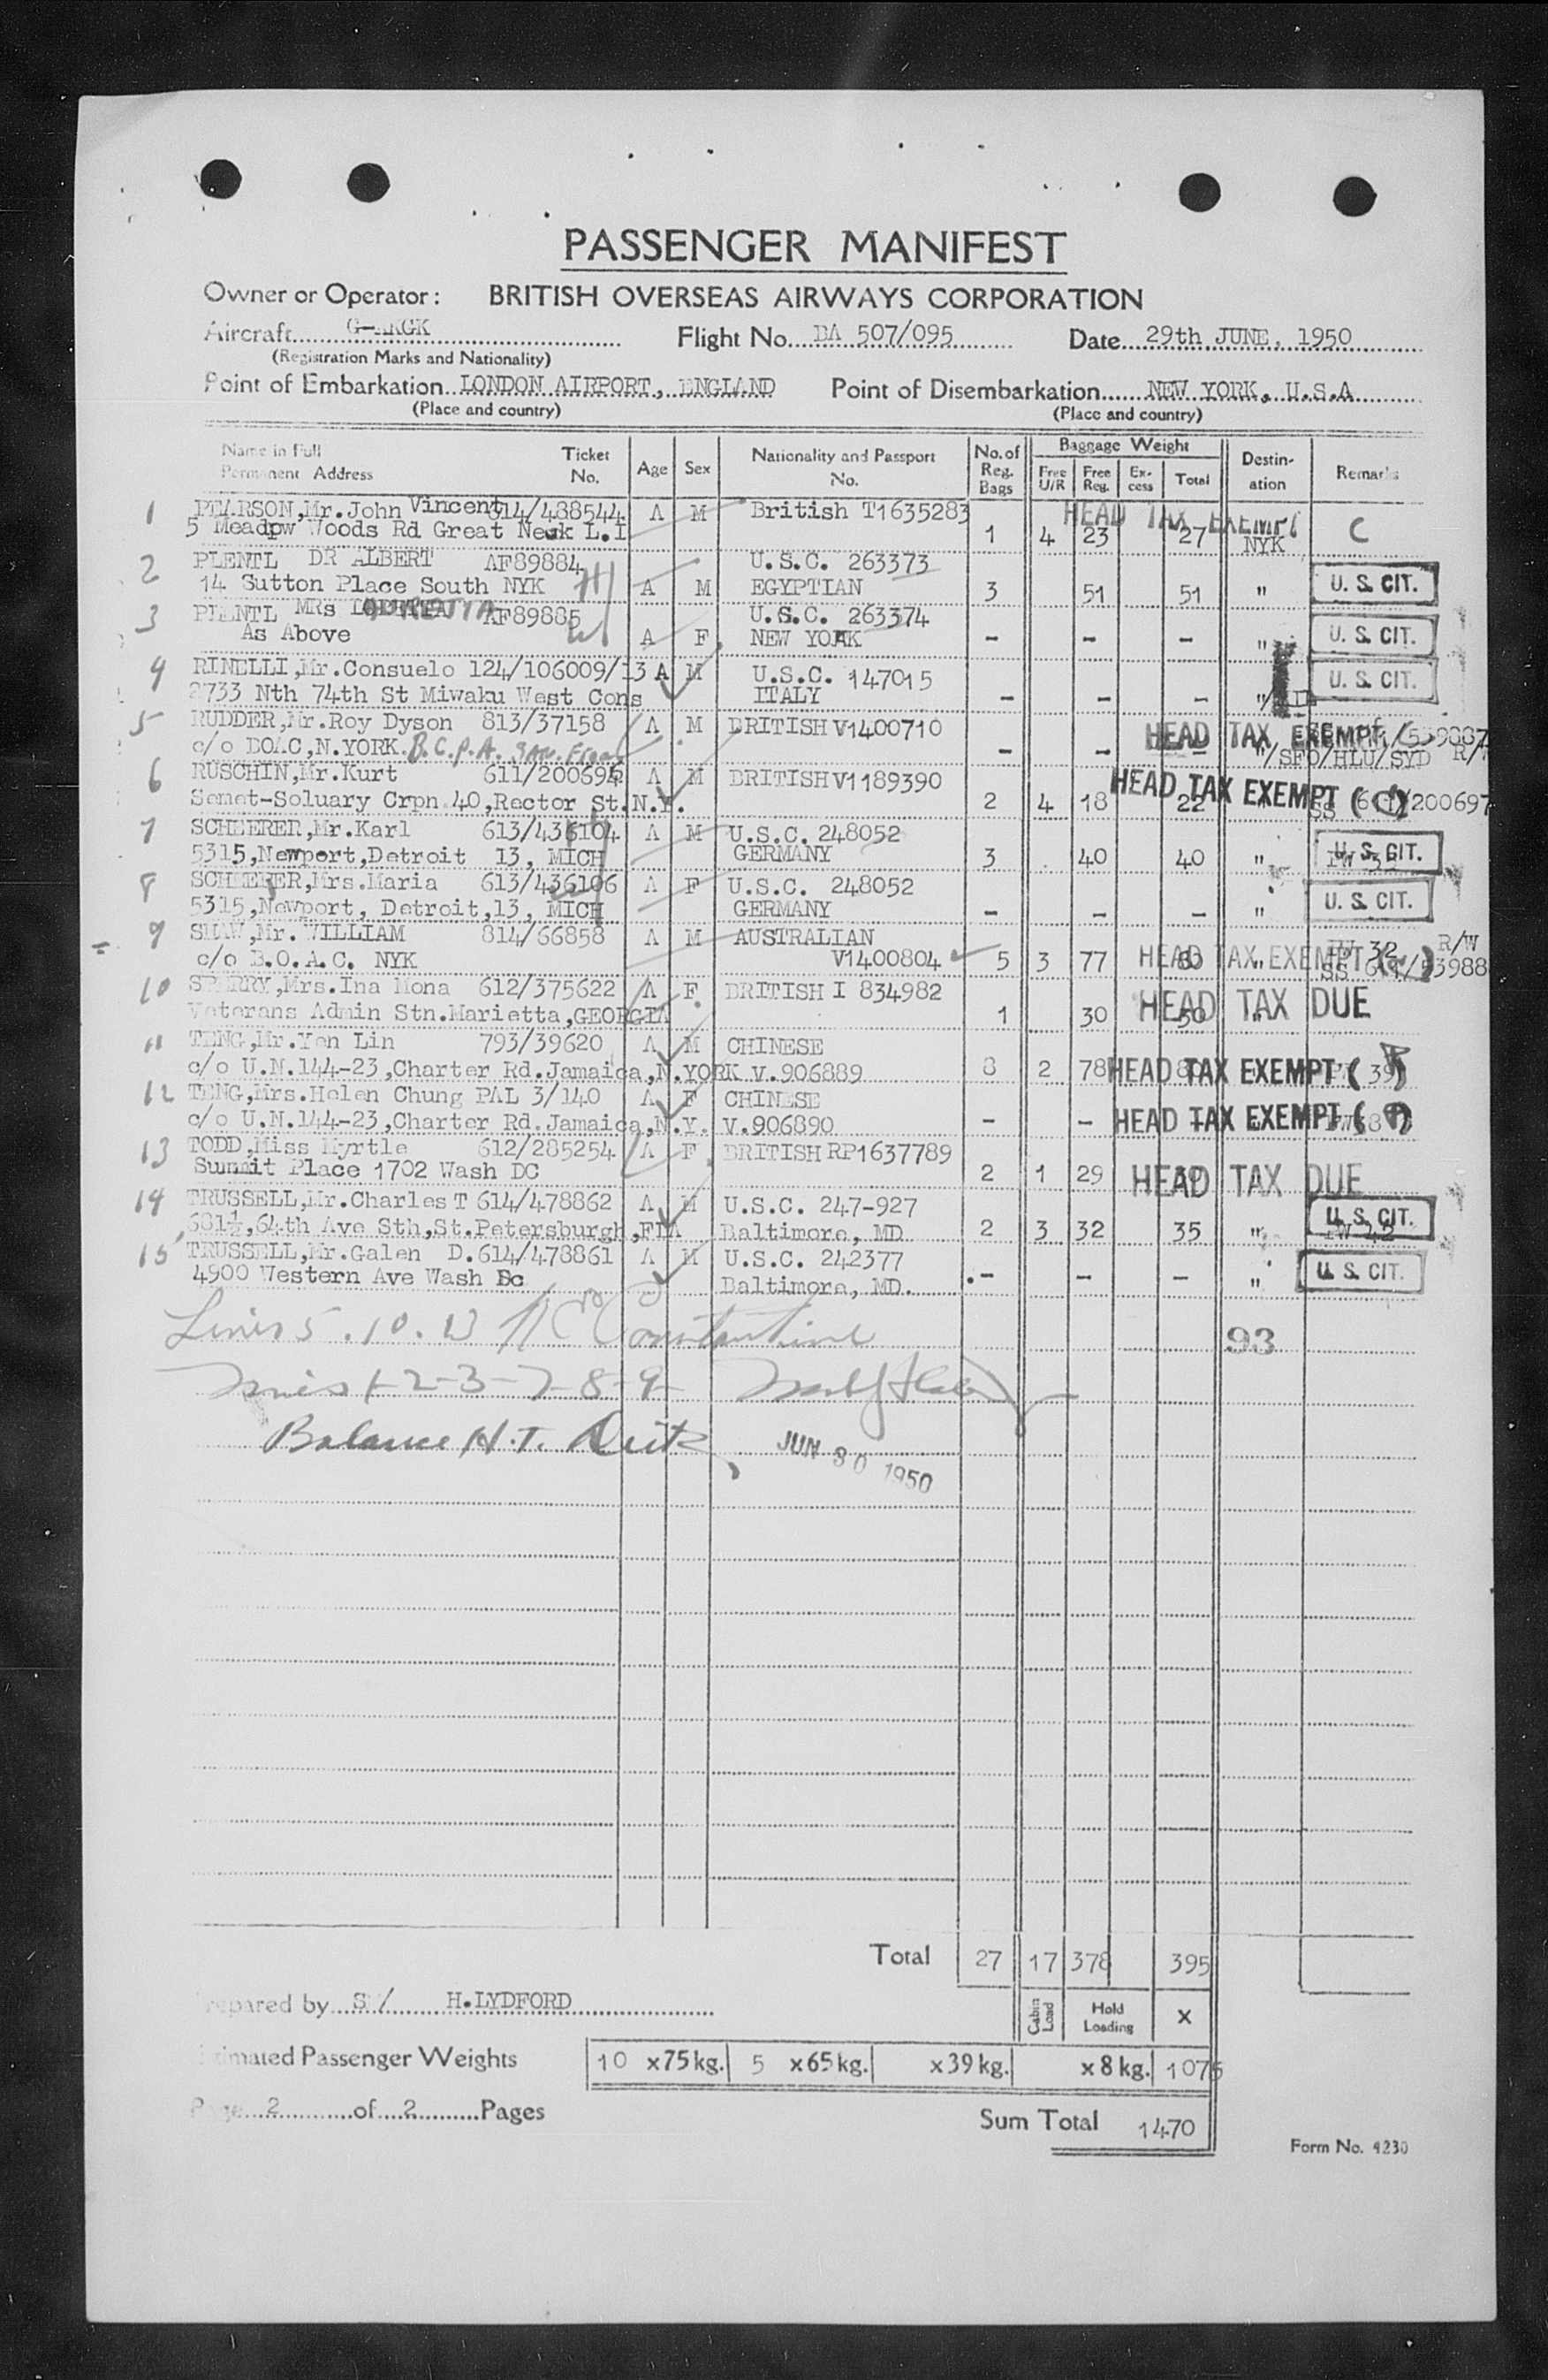 PASSENGER MANIFEST
Owner or Operator: BRITISH OVERSEAS AIRWAYS CORPORATION
Aircraft G-AKGK Flight No. BA 507/095 Date 29th JUNE, 1950
(Registration Marks and Nationality)
Point of Embarkation LONDON AIRPORT, ENGLAND Point of Disembarkation NEW YORK, U.S.A
(Place and country) (Place and country)
Name in Full Ticket Age Sex Nationality and Passport No. of Baggage Weight Destin- Remarks
Permanent Address No. No. Reg. Bags Free U/R Free Reg. Ex-cess Total ation
1 PEARSON,Mr.John Vincent 614/488544 A M British T1635283 HEAD TAX EXEMPT
5 Meadow Woods Rd Great Neck L.I 1 4 23 27 NYK C
2 PLENTL DR ALBERT AF89884 U.S.C. 263373
14 Sutton Place South NYK A M EGYPTIAN 3 51 51 " U. S. CIT.
3 PLENTL MRs AF89885 U.S.C. 263374
As Above A F NEW YORK - - - " U. S. CIT.
4 RINELLI,Mr.Consuelo 124/106009/13 A M U.S.C. 147015 U. S. CIT.
2733 Nth 74th St Miwaku West Cons ITALY - - - "
5 RUDDER,Mr.Roy Dyson 813/37158 A M BRITISH V1400710 HEAD TAX EXEMPT
c/o BOAC,N.YORK. B.C.P.A. San. - - - "/SFO/HLU/SYD
6 RUSCHIN,Mr.Kurt 611/200696 A M BRITISH V1189390 HEAD TAX EXEMPT
Semet-Soluary Crpn 40,Rector St.N.Y. 2 4 18 22 SS 200697
7 SCHEERER,Mr.Karl 613/436104 A M U.S.C. 248052
5315,Newport,Detroit 13, MICH GERMANY 3 40 40 " U. S. CIT.
8 SCHEERER,Mrs.Maria 613/436106 A F U.S.C. 248052
5315,Newport, Detroit,13, MICH GERMANY - - - " U. S. CIT.
9 SHAW,Mr. WILLIAM 814/66858 A M AUSTRALIAN R/W
c/o B.O.A.C. NYK V1400804 5 3 77 HEAD TAX EXEMPT
10 SPERRY,Mrs.Ina Mona 612/375622 A F BRITISH I 834982
Veterans Admin Stn.Marietta,GEORGIA 1 30 HEAD TAX DUE
11 TENG,Mr.Yen Lin 793/39620 A M CHINESE
c/o U.N.144-23,Charter Rd.Jamaica,N.YORK V.906889 8 2 78 HEAD TAX EXEMPT
12 TENG,Mrs.Helen Chung PAL 3/140 A F CHINESE
c/o U.N.144-23,Charter Rd.Jamaica,N.Y. V.906890 - - HEAD TAX EXEMPT
13 TODD,Miss Myrtle 612/285254 A F BRITISH RP1637789
Summit Place 1702 Wash DC 2 1 29 HEAD TAX DUE
14 TRUSSELL,Mr.Charles T 614/478862 A M U.S.C. 247-927
681½,64th Ave Sth,St.Petersburgh,FLA Baltimore, MD 2 3 32 35 " U. S. CIT.
15 TRUSSELL,Mr.Galen D.614/478861 A M U.S.C. 242377
4900 Western Ave Wash Dc Baltimore, MD. - - - " U. S. CIT.
Lines 5.10.13 93
1-2-3-7-8-9
Balance H.T.
JUN 30 1950
Total 27 17 378 395
Prepared by H.LYDFORD Cabin Load Hold Loading X
Estimated Passenger Weights 10 x75kg. 5 x65kg. x39kg. x8kg. 1075
Page 2 of 2 Pages Sum Total 1470
Form No. 4230